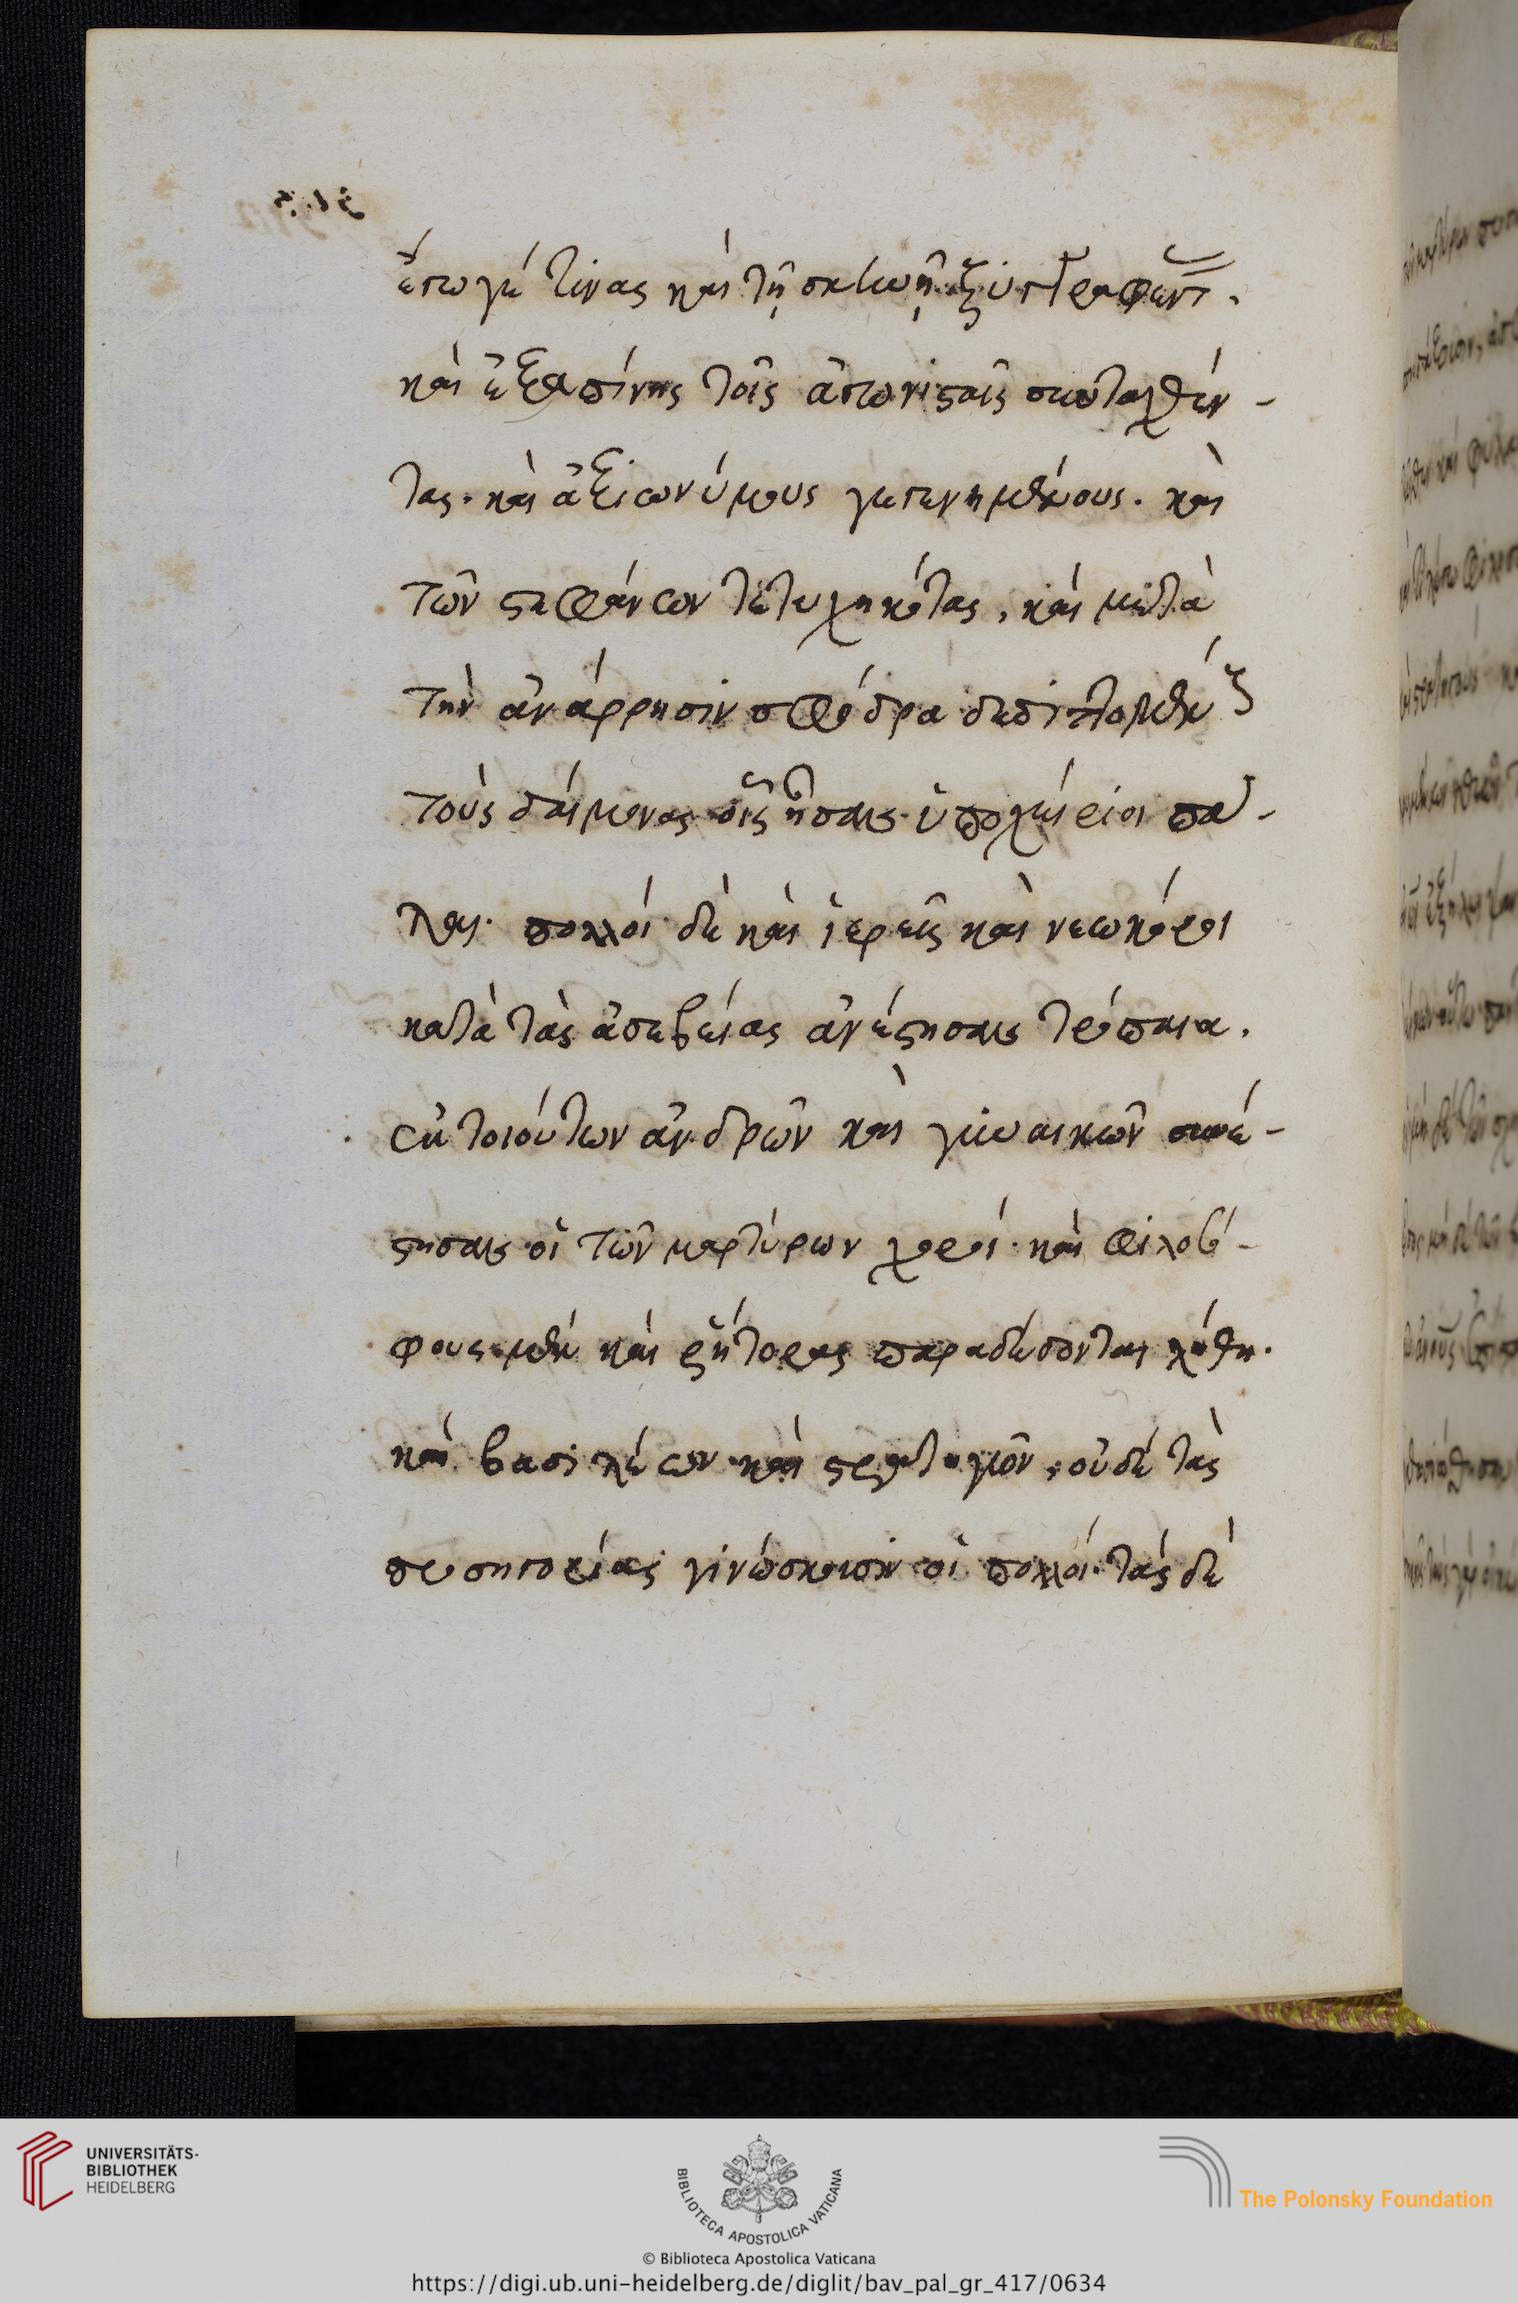 ἔγωγέ τινας καὶ τῇ σκηνῇ ξυντραφέντ.
καὶ ἐξαπίνης τοῖς ἀγωνισταῖς συνταχθέν-
τας. καὶ ἀξιωνύμους γεγενημένους. καὶ
τῶν στεφάνων τετυχηκότας, καὶ μετὰ
τὴν ἀνάρρησιν σφόδρα δεδιττομένους
τοὺς δαίμονας οἷς ἦσαν ὑποχείριοι πά-
λαι. πολλοὶ δὲ καὶ ἱερεῖς καὶ νεωκόροι
κατὰ τὰς ἀσεβείας ἀνέστησαν τρόπαια.
ἐκ τοιούτων ἀνδρῶν καὶ γυναικῶν συνέ-
στησαν οἱ τῶν μαρτύρων χοροί. καὶ φιλοσό-
φους μὲν καὶ ῥήτορας παραδέδονται λήθη.
καὶ βασιλέων καὶ στρατηγῶν, οὐδὲ τὰς
προσηγορίας γινώσκουσιν οἱ πολλοί. τὰς δὲ
UNIVERSITÄTS-
BIBLIOTHEK
HEIDELBERG
BIBLIOTECA APOSTOLICA VATICANA
© Biblioteca Apostolica Vaticana
The Polonsky Foundation
https://digi.ub.uni-heidelberg.de/diglit/bav_pal_gr_417/0634